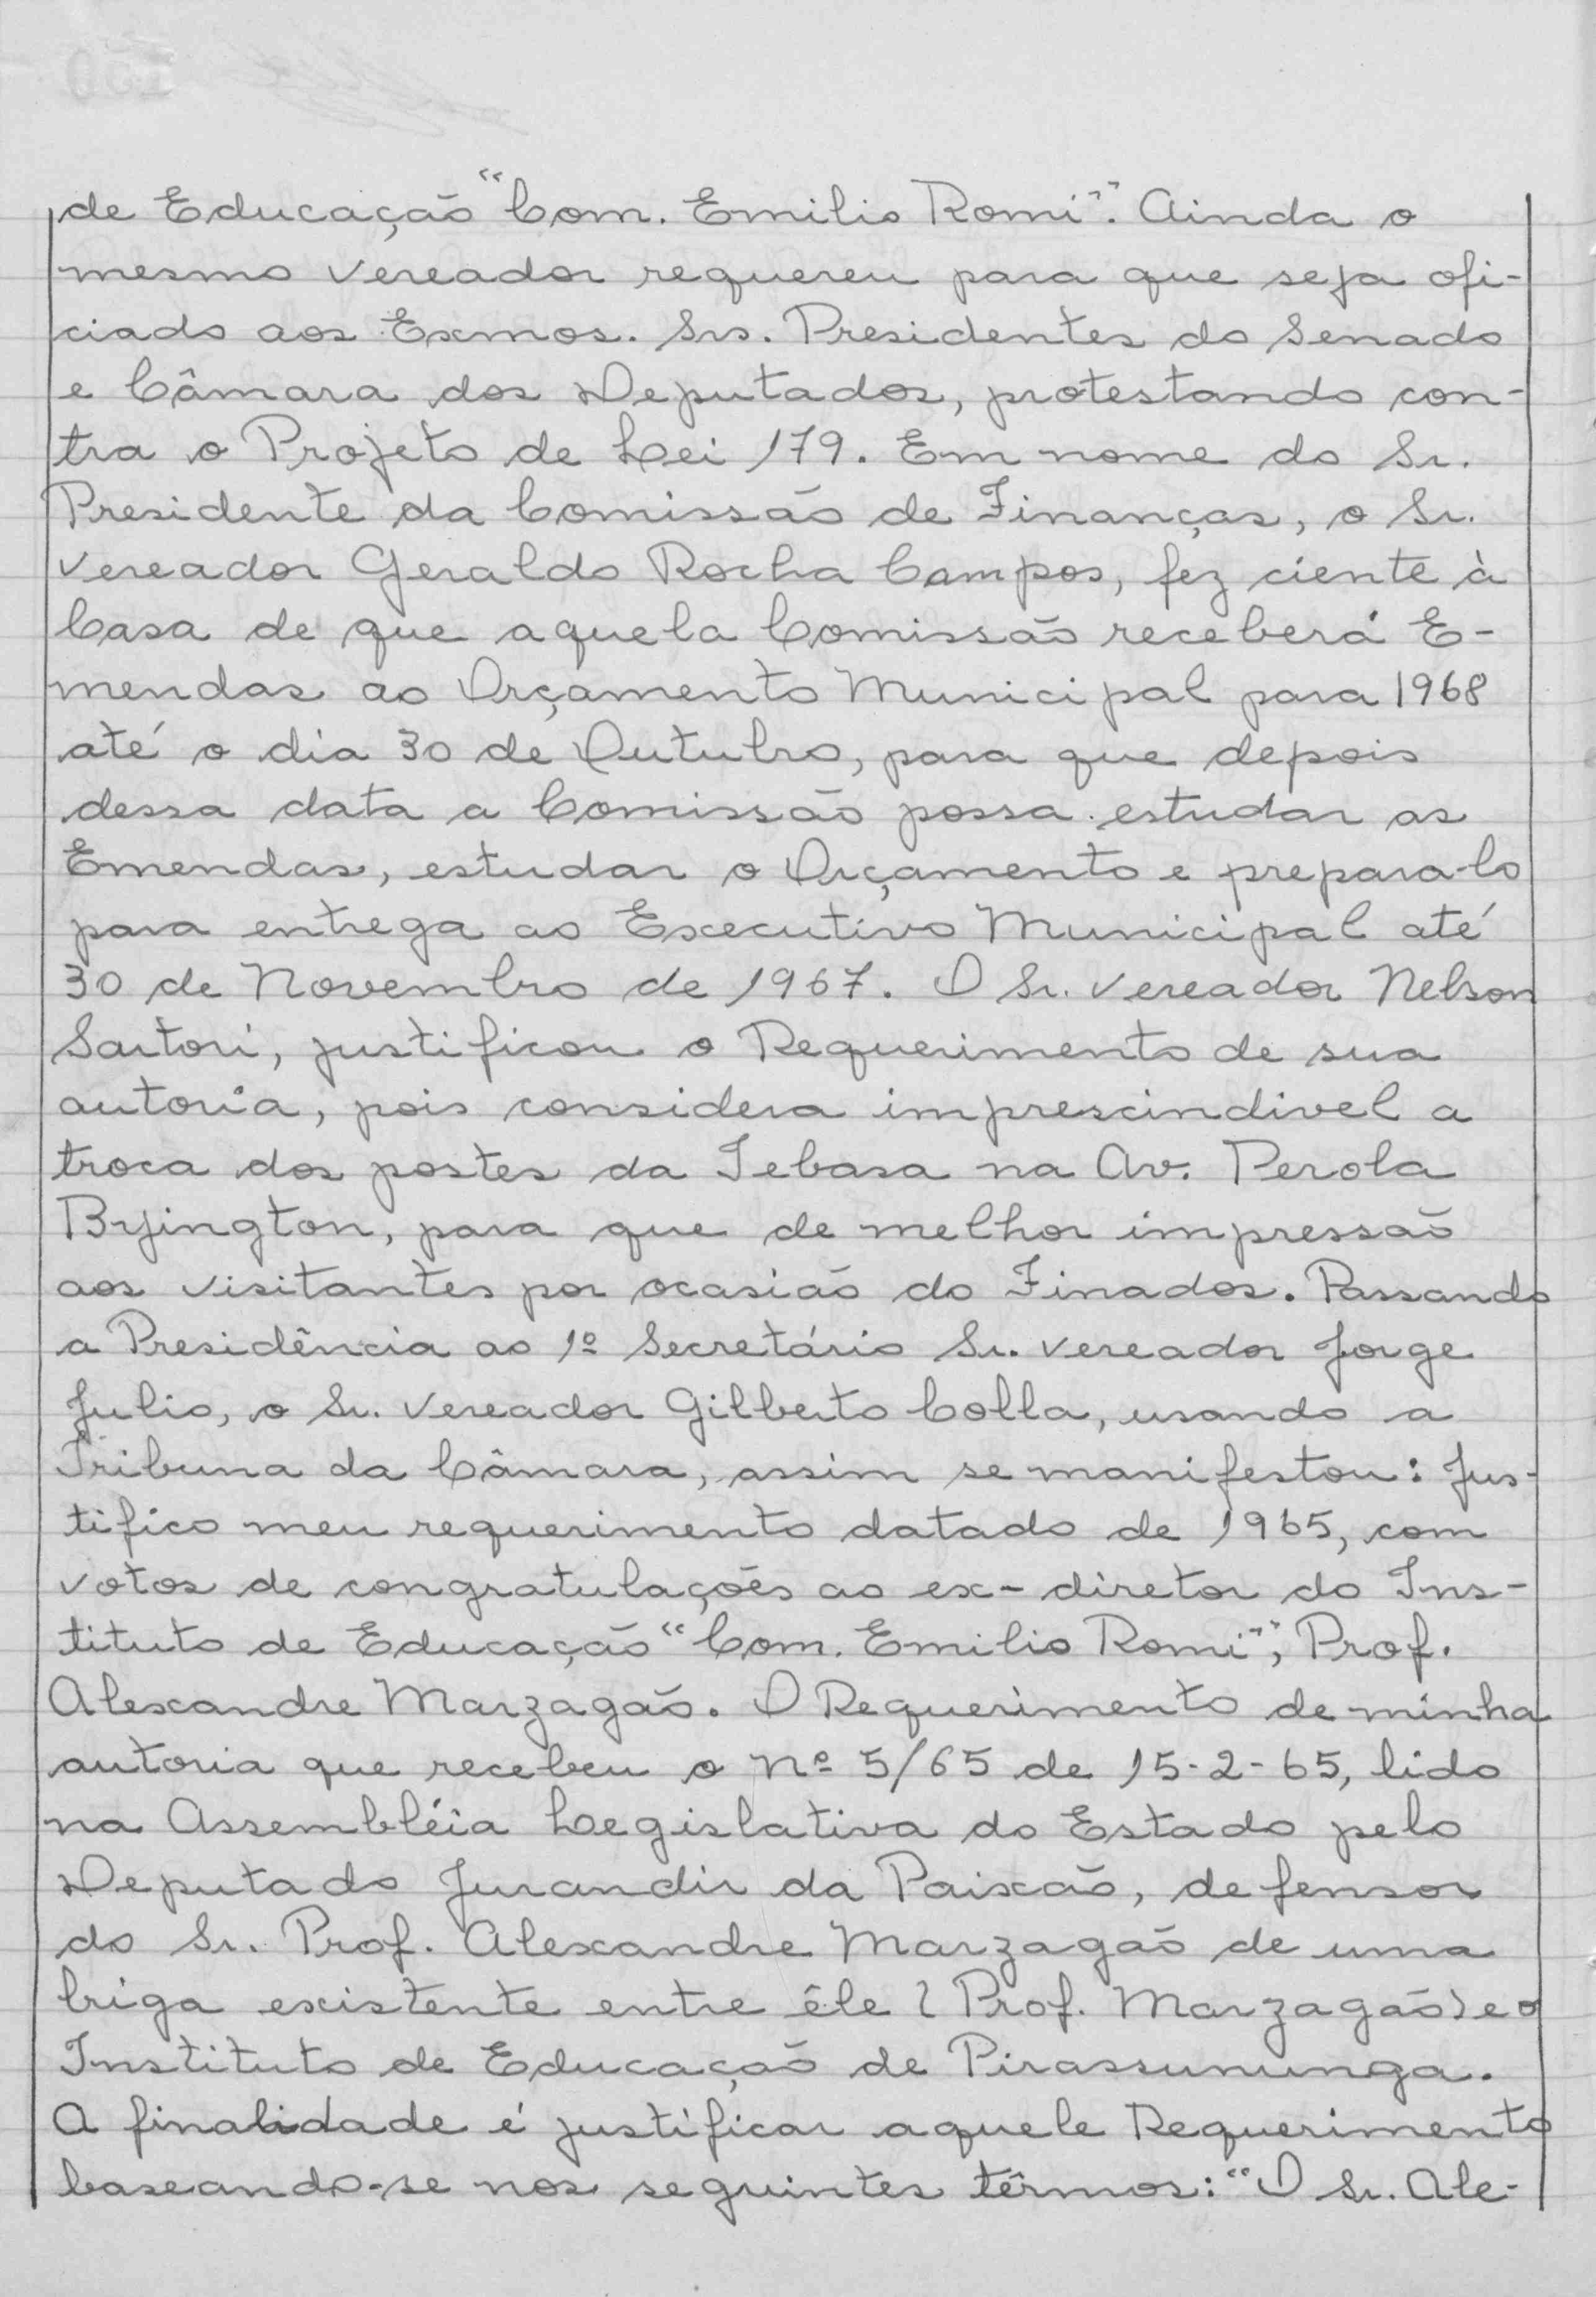 de Educação "Com. Emilio Romi". Ainda o
mesmo vereador requereu para que seja ofi-
ciado aos Exmos. Srs. Presidentes do Senado
e Câmara dos Deputados, protestando con-
tra o Projeto de Lei 179. Em nome do Sr.
Presidente da Comissão de Finanças, o Sr.
vereador Geraldo Rocha Campos, fez ciente à
Casa de que aquela Comissão receberá E-
mendas ao Orçamento Municipal para 1968
até o dia 30 de Outubro, para que depois
dessa data a Comissão possa estudar as
Emendas, estudar o Orçamento e prepara-lo
para entrega ao Executivo Municipal até
30 de Novembro de 1967. O Sr. vereador Nelson
Sartori, justificou o Requerimento de sua
autoria, pois considera imprescindivel a
troca dos postes da Tebasa na Av. Perola
Byington, para que de melhor impressão
aos visitantes por ocasião do Finados. Passando
a Presidência ao 1º Secretário Sr. vereador Jorge
Julio, o Sr. vereador Gilberto Colla, usando a
Tribuna da Câmara, assim se manifestou: Jus-
tifico meu requerimento datado de 1965, com
votos de congratulações ao ex-diretor do Ins-
tituto de Educação "Com. Emilio Romi", Prof.
Alexandre Marzagão. O Requerimento de minha
autoria que recebeu o nº 5/65 de 15-2-65, lido
na Assembléia Legislativa do Estado pelo
Deputado Jurandir da Paixão, defensor
do Sr. Prof. Alexandre Marzagão de uma
briga existente entre êle (Prof. Marzagão) e o
Instituto de Educação de Pirassununga.
A finalidade é justificar aquele Requerimento
baseando-se nos seguintes têrmos: "O Sr. Ale-